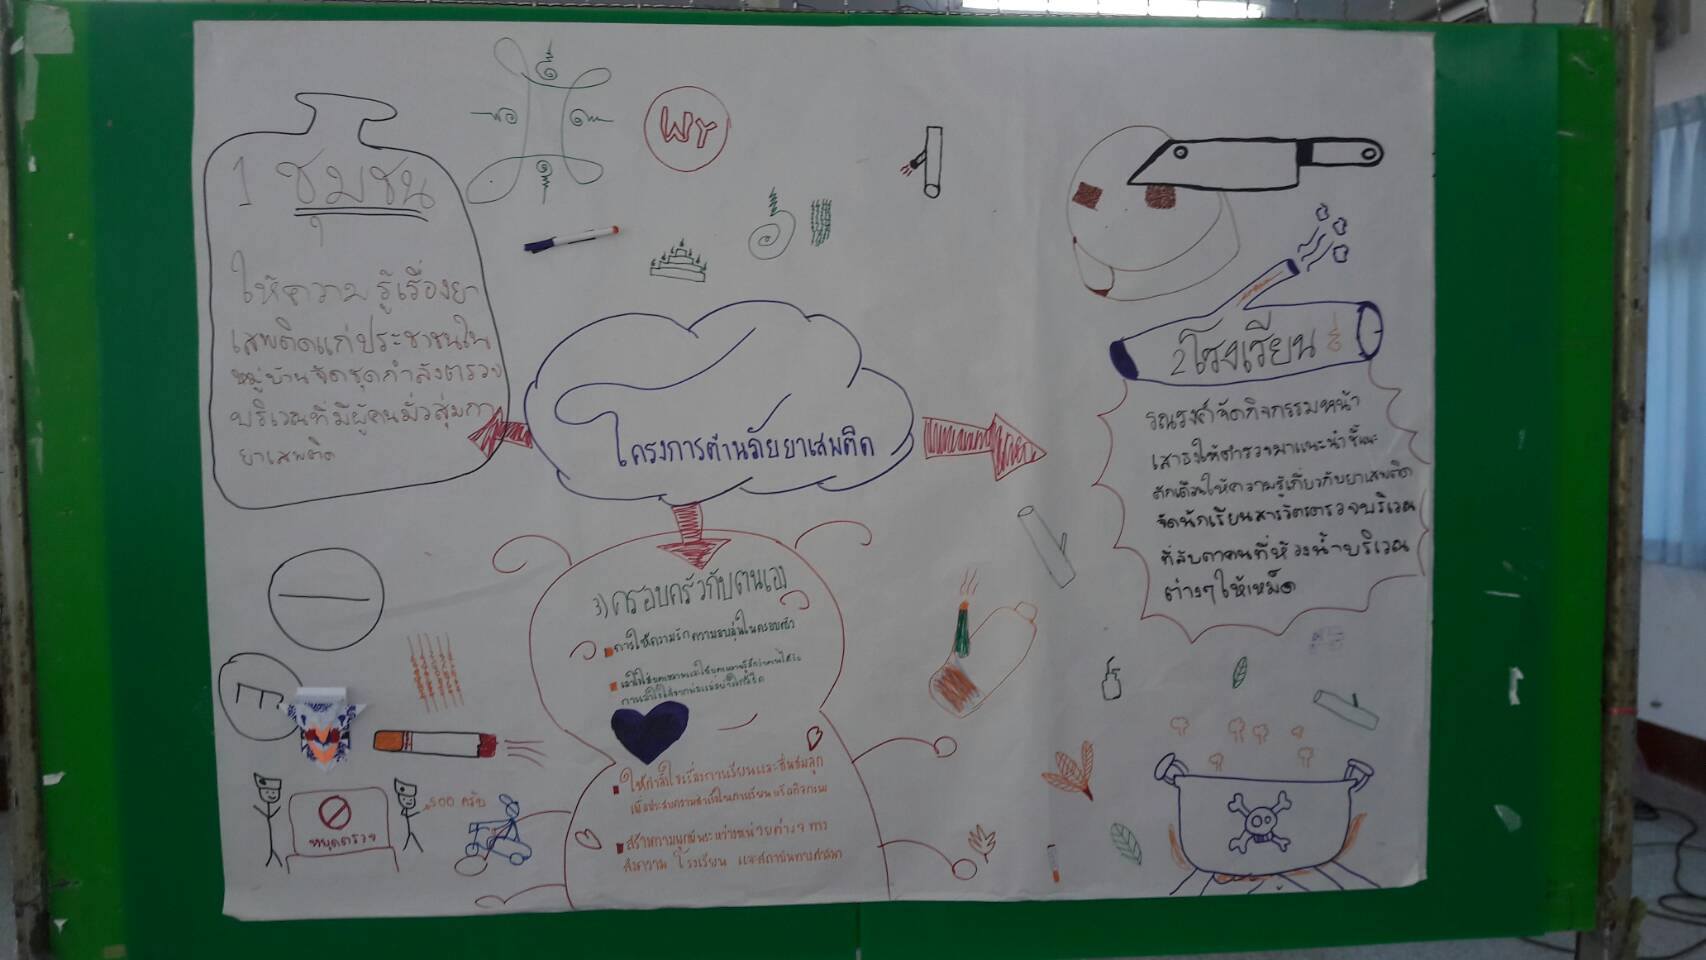 1 ชุมชน
ให้ความรู้เรื่องยา
เสพติดแก่ประชาชนใน
หมู่บ้านจัดชุดกำลังตรวจ
บริเวณที่มีผู้คนมั่วสุมกา
ยาเสพติด
WY
โครงการต้านภัยยาเสพติด
2 โรงเรียน
รณรงค์จัดกิจกรรมหน้า
เสาธงให้ตำรวจมาแนะนำชี้แนะ
ตักเตือนให้ความรู้เกี่ยวกับยาเสพติด
จัดนักเรียนสารวัตรตรวจบริเวณ
ที่ลับตาคนที่ห้องน้ำบริเวณ
ต่างๆให้เหม็ด
3) ครอบครัวกับตนเอง
การให้ความรักความอบอุ่นในครอบครัว
ให้กำลังใจเรื่องการเรียนและชื่นชมลูก
เมื่อประสบความสำเร็จในการเรียน หรือกิจกรรม
สร้างความผูกพันระหว่างหน่วยต่างๆ ทาง
สังความ โรงเรียน และสถาบันทางศาสนา
หยุดตรวจ
500 ครับ